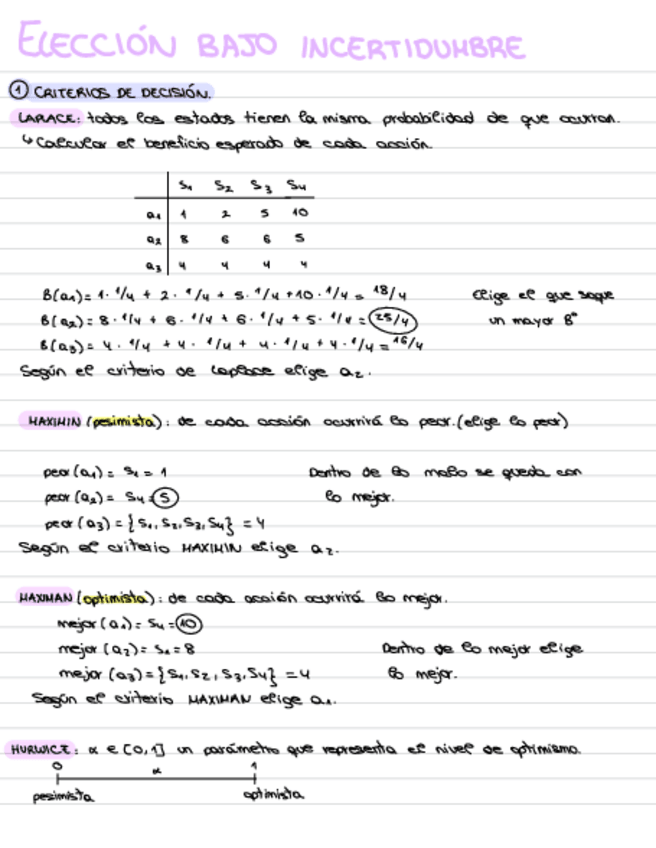 ELECCIÓN BAJO INCERTIDUMBRE
① CRITERIOS DE DECISIÓN.
LAPLACE: todos los estados tienen la misma probabilidad de que ocurran.
↳ Calcular el beneficio esperado de cada acción.
S₁ S₂ S₃ S₄
a₁ 1 2 5 10
a₂ 8 6 6 5
a₃ 4 4 4 4
B(a₁) = 1 · 1/4 + 2 · 1/4 + 5 · 1/4 + 10 · 1/4 = 18/4 Elige el que saque
B(a₂) = 8 · 1/4 + 6 · 1/4 + 6 · 1/4 + 5 · 1/4 = 25/4 un mayor Bº
B(a₃) = 4 · 1/4 + 4 · 1/4 + 4 · 1/4 + 4 · 1/4 = 16/4
Según el criterio de Laplace elige a₂.
MAXIMIN (pesimista): de cada acción ocurrirá lo peor. (elige lo peor)
peor (a₁) = S₁ = 1 Dentro de lo malo se queda con
peor (a₂) = S₄ = 5 lo mejor.
peor (a₃) = {S₁, S₂, S₃, S₄} = 4
Según el criterio MAXIMIN elige a₂.
MAXIMAN (optimista): de cada acción ocurrirá lo mejor.
mejor (a₁) = S₄ = 10
mejor (a₂) = S₁ = 8 Dentro de lo mejor elige
mejor (a₃) = {S₁, S₂, S₃, S₄} = 4 lo mejor.
Según el criterio MAXIMAN elige a₁.
HURWICZ: α ∈ [0,1] un parámetro que representa el nivel de optimismo.
0 α 1
pesimista optimista